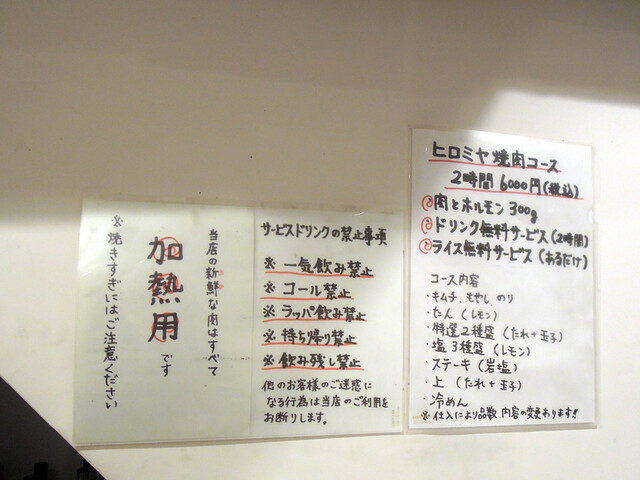 当店の新鮮な肉はすべて
加熱用です
※焼きすぎにはご注意ください
サービスドリンクの禁止事項
※一気飲み禁止
※コール禁止
※ラッパ飲み禁止
※持ち帰り禁止
※飲み残し禁止
他のお客様のご迷惑に
なる行為は当店のご利用を
お断りします。
ヒロミヤ焼肉コース
2時間 6000円(税込)
①肉とホルモン300g
②ドリンク無料サービス(2時間)
③ライス無料サービス(あるだけ)
コース内容
・キムチ、もやし、のり
・たん(レモン)
・特選2種盛(たれ+玉子)
・塩3種盛(レモン)
・ステーキ(岩塩)
・上(たれ+玉子)
・冷めん
※仕入により品数、内容の変更あります!!